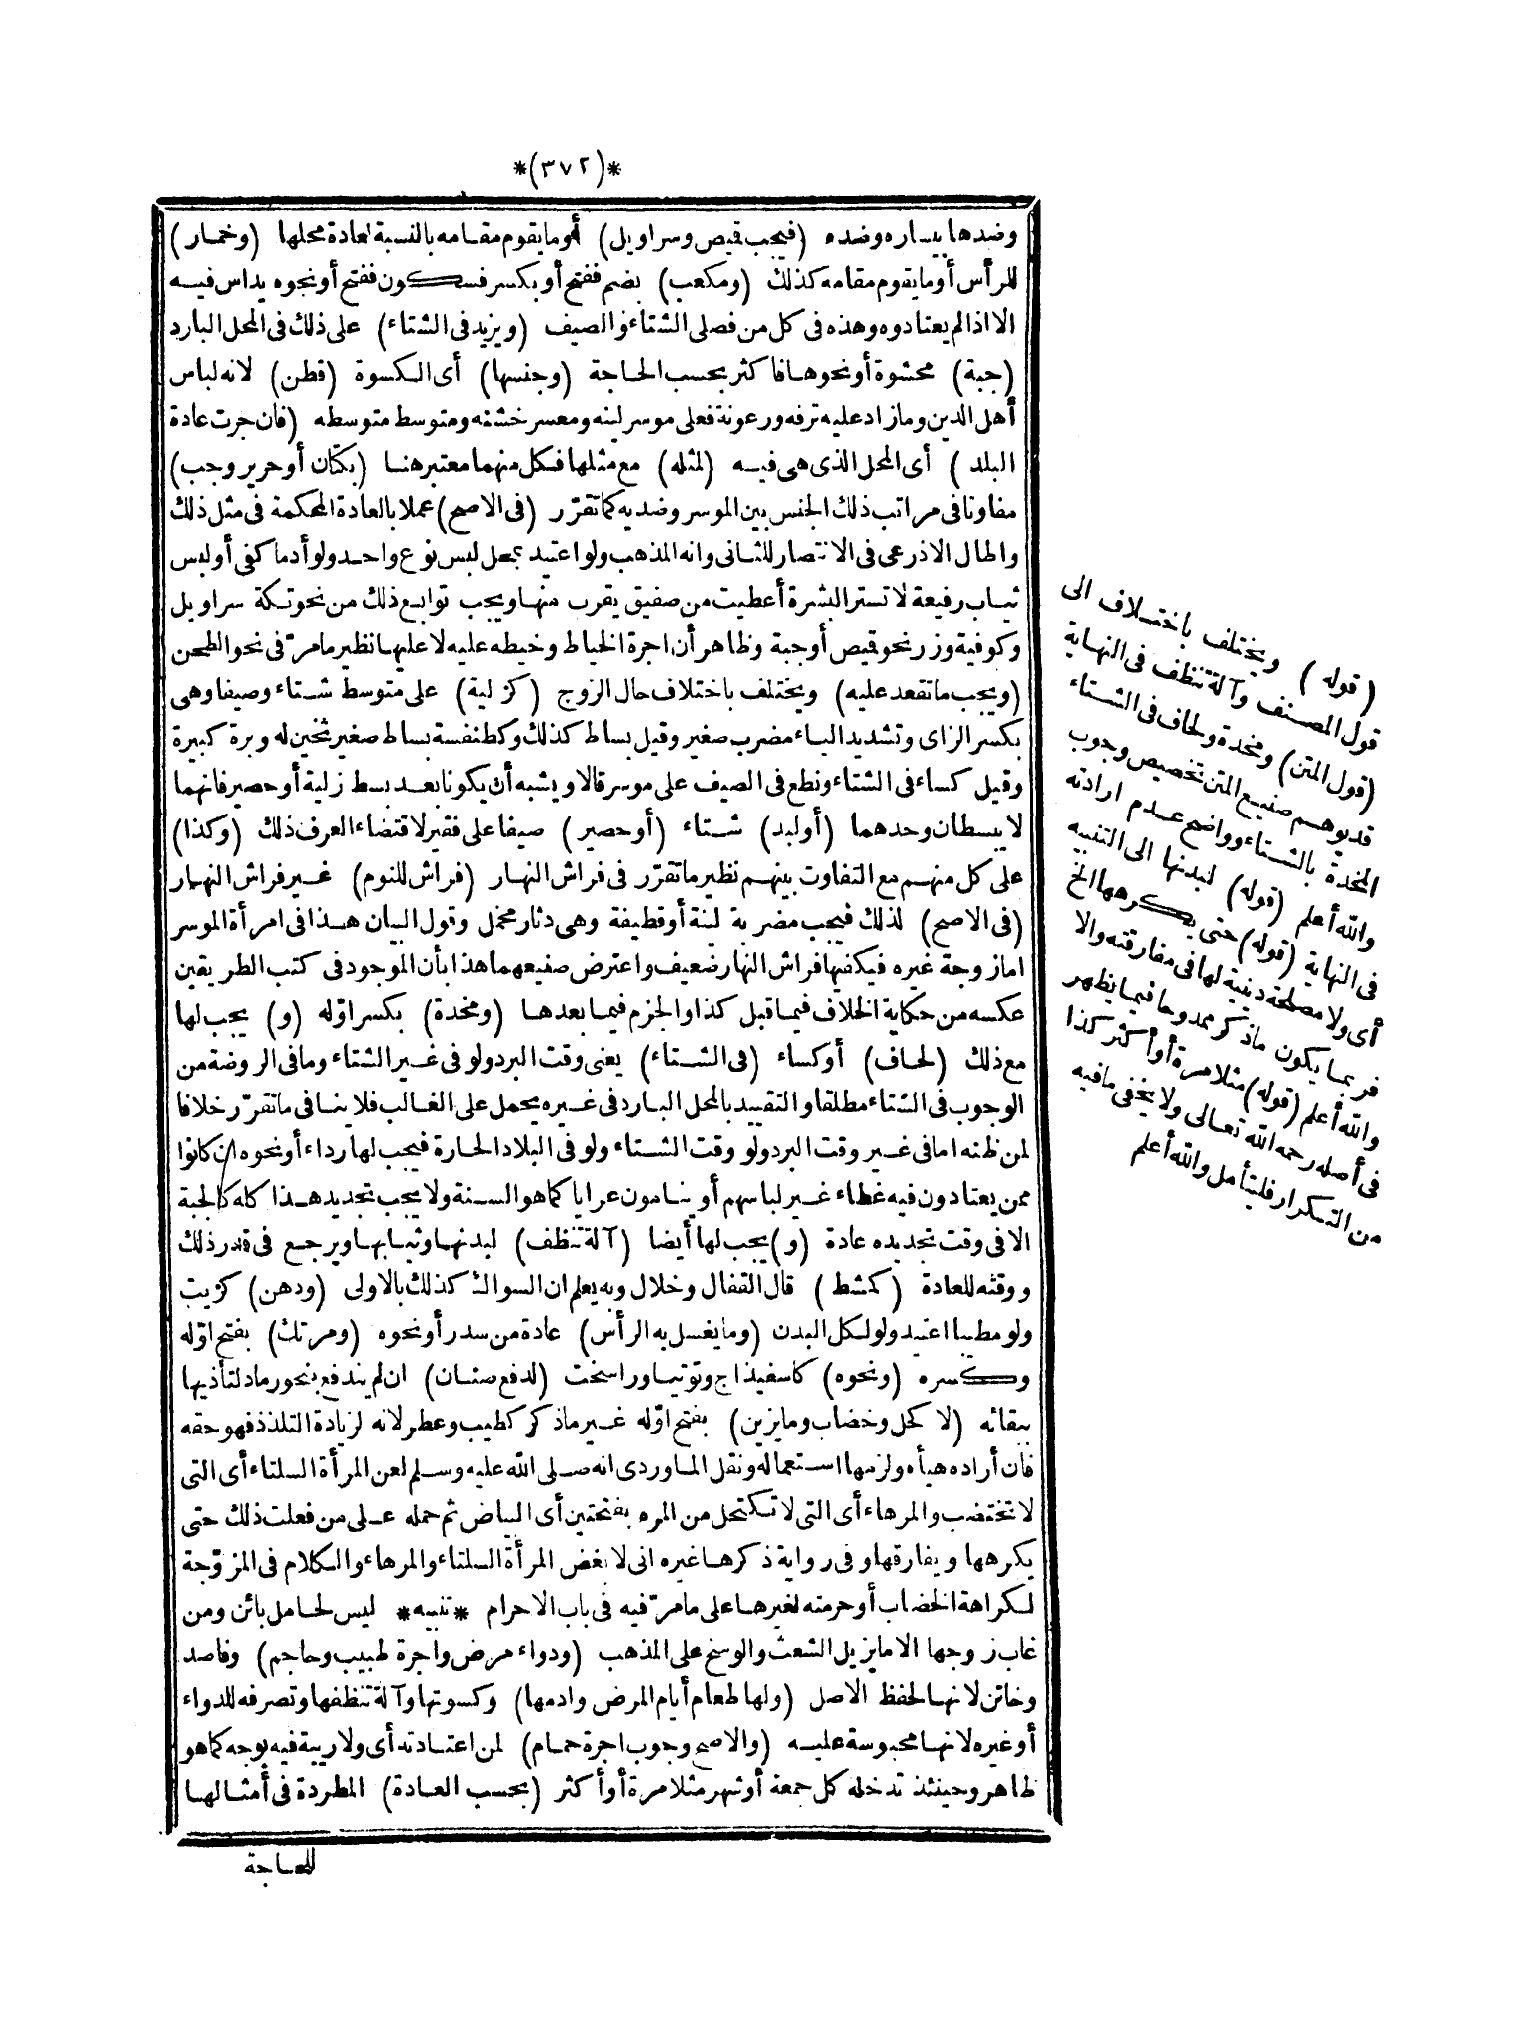 *(٣٧٢)*
وضدها بيساره وضده (فيجب قميص وسراويل) أو ما يقوم مقامه بالنسبة لعادة محلها (وخمار)
للرأس أو ما يقوم مقامه كذلك (ومكعب) بضم ففتح أو بكسر فسكون ففتح أو نحوه يداس فيه
الا اذا لم يعتادوه وهذه فى كل من فصلى الشتاء والصيف (ويزيد فى الشتاء) على ذلك فى المحل البارد
(جبة) محشوة أو نحوها فاكثر بحسب الحاجة (وجنسها) أى الكسوة (قطن) لانه لباس
أهل الدين وما زاد عليه ترفه ورعونة فعلى موسر لينه ومعسر خشنه ومتوسط متوسطه (فان جرت عادة
البلد) أى المحل الذى هى فيه (لمثله) مع مثلها فكل منهما معتبر هنا (بكتان أو حرير وجب)
مفاوتا فى مراتب ذلك الجنس بين الموسر وضديه كما تقرّر (فى الاصح) عملا بالعادة المحكمة فى مثل ذلك
واطال الاذرعى فى الانتصار للثانى وانه المذهب ولو اعتيد بمحل لبس نوع واحد ولو أدما كفى أو لبس
ثياب رفيعة لا تستر البشرة أعطيت من صفيق يقرب منها ويجب توابع ذلك من نحو تكة سراويل
وكوفية وزر نحو قميص أو جبة وظاهر أن اجرة الخياط وخيطه عليه لا عليها نظير ما مرّ فى نحو الطحن
(ويجب ما تقعد عليه) ويختلف باختلاف حال الزوج (كزلية) على متوسط شتاء وصيفا وهى
بكسر الزاى وتشديد الياء مضرب صغير وقيل بساط كذلك وكطنفسة بساط صغير ثخين له وبرة كبيرة
وقيل كساء فى الشتاء ونطع فى الصيف على موسر قالا ويشبه أن يكونا بعد بسط زلية أو حصير فانهما
لا يبسطان وحدهما (أو لبد) شتاء (أو حصير) صيفا على فقير لاقتضاء العرف ذلك (وكذا)
على كل منهم مع التفاوت بينهم نظير ما تقرّر فى فراش النهار (فراش للنوم) غير فراش النهار
(فى الاصح) لذلك فيجب مضربة لينة أو قطيفة وهى دثار مخمل وقول البيان هذا فى امرأة الموسر
اما زوجة غيره فيكفيها فراش النهار ضعيف واعترض صنيعهما هذا بأن الموجود فى كتب الطريقين
عكسه من حكاية الخلاف فيما قبل كذا والجزم فيما بعدها (ومخدة) بكسر اوّله (و) يجب لها
مع ذلك (لحاف) أو كساء (فى الشتاء) يعنى وقت البرد ولو فى غير الشتاء وما فى الروضة من
الوجوب فى الشتاء مطلقا والتقييد بالمحل البارد فى غيره يحمل على الغالب فلا ينافى ما تقرّر خلافا
لمن ظنه اما فى غير وقت البرد ولو وقت الشتاء ولو فى البلاد الحارة فيجب لها رداء أو نحوه ان كانوا
ممن يعتادون فيه غطاء غير لباسهم أو ينامون عرايا كما هو السنة ولا يجب تجديد هذا كله كالجبة
الا فى وقت تجديده عادة (و) يجب لها أيضا (آلة تنظف) لبدنها وثيابها ويرجع فى قدر ذلك
ووقته للعادة (كمشط) قال القفال وخلال وبه يعلم ان السواك كذلك بالاولى (ودهن) كزيت
ولو مطيبا اعتيد ولو لكل البدن (وما يغسل به الرأس) عادة من سدر أو نحوه (ومرتك) بفتح اوّله
وكسره (ونحوه) كاسفيذاج وتوتيا وراسخت (لدفع صنان) ان لم يندفع بنحو رماد لتأذيها
ببقائه (لا كحل وخضاب وما يزين) بفتح اوّله غير ما ذكر كطيب وعطر لانه لزيادة التلذذ فهو حقه
فان أراده هيأه ولزمها استعماله ونقل الماوردى انه صلى الله عليه وسلم لعن المرأة السلتاء أى التى
لا تختضب والمرهاء أى التى لا تكتحل من المره بفتحتين أى البياض ثم حمله على من فعلت ذلك حتى
يكرهها ويفارقها وفى رواية ذكرها غيره انى لا بغض المرأة السلتاء والمرهاء والكلام فى المزوّجة
لكراهة الخضاب أو حرمته لغيرها على ما مرّ فيه فى باب الاحرام *تنبيه* ليس لحامل بائن ومن
غاب زوجها الا ما يزيل الشعث والوسخ على المذهب (ودواء مرض واجرة طبيب وحاجم) وفاصد
وخاتن لانها لحفظ الاصل (ولها طعام أيام المرض وادمها) وكسوتها وآلة تنظفها وتصرفه للدواء
أو غيره لانها محبوسة عليه (والاصح وجوب اجرة حمام) لمن اعتادته أى ولا ريبة فيه بوجه كما هو
ظاهر وحينئذ تدخله كل جمعة أو شهر مثلا مرة أو أكثر (بحسب العادة) المطردة فى أمثالها
للحاجة
(قوله) ويختلف باختلاف الى
قول المصنف وآلة تنظف فى النهاية
(قول المتن) ومخدة ولحاف فى الشتاء
قد يوهم صنيع المتن تخصيص وجوب
المخدة بالشتاء وواضح عدم ارادته
والله أعلم (قوله) لبدنها الى التنبيه
فى النهاية (قوله) حتى يكرهها الخ
أى ولا مصلحة دينية لها فى مفارقته والا
فربما يكون ما ذكر ممدوحا فيما يظهر
والله أعلم (قوله) مثلا مرة أو أكثر كذا
فى أصله رحمه الله تعالى ولا يخفى ما فيه
من التكرار فليتأمل والله أعلم